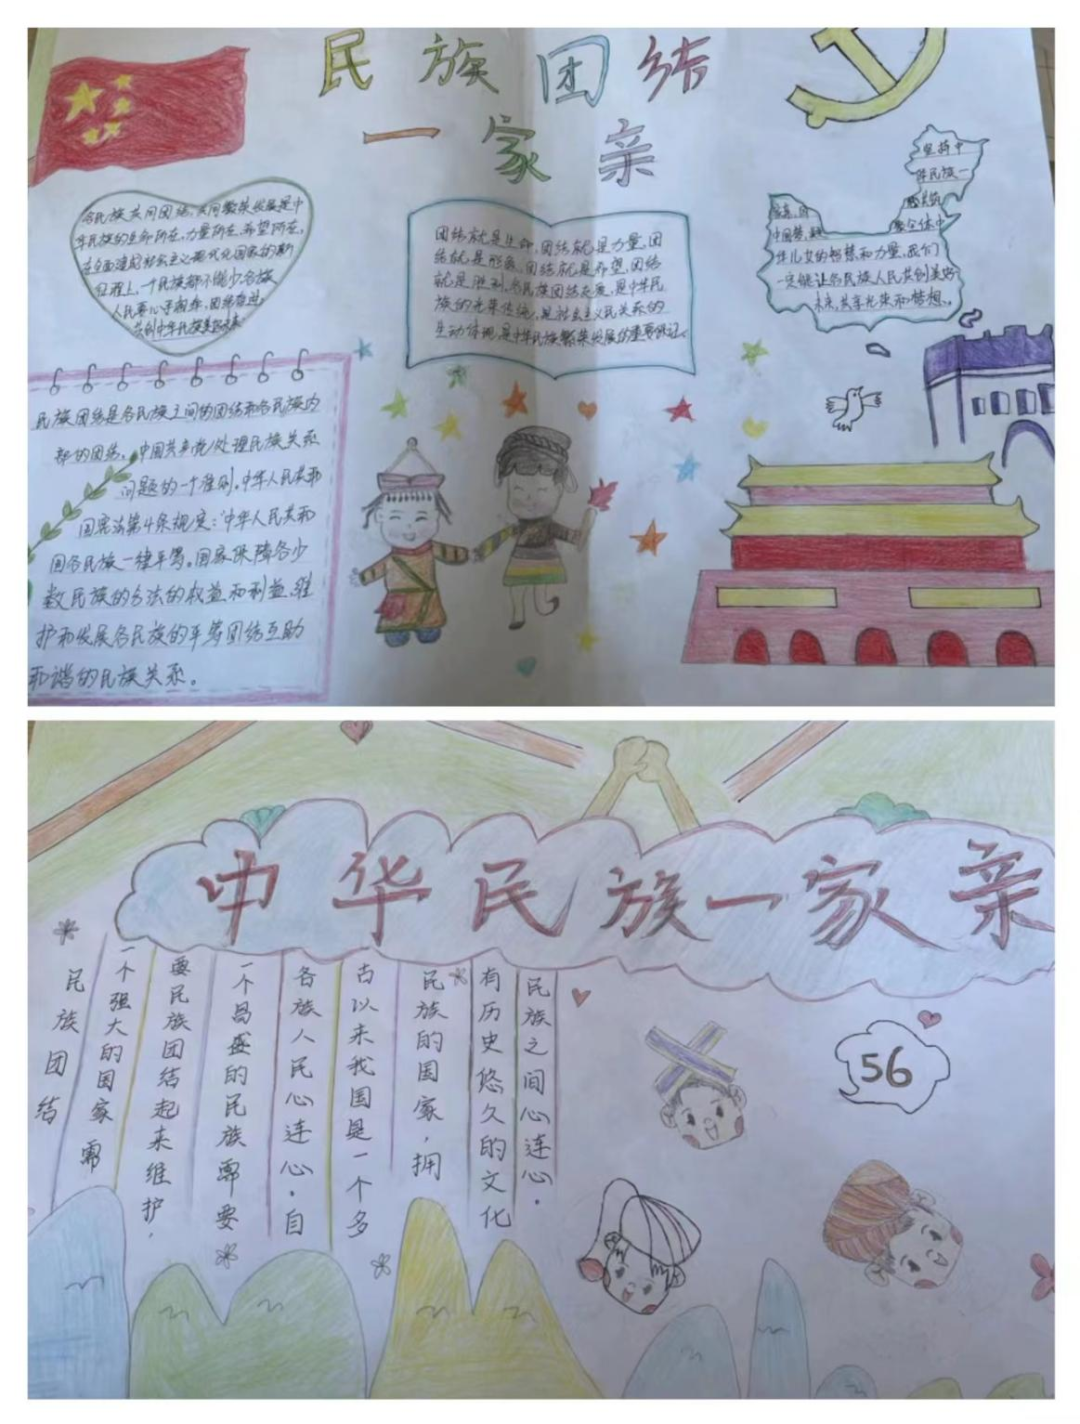 民族团结
一家亲
各民族共同团结,共同繁荣发展是中
华民族的生命所在,力量所在,希望所在,
在全面建设社会主义现代化国家的新
征程上,一个民族都不能少,各族
人民要心手相牵,团结奋进,
共创中华民族美好未来
团结就是生命,团结就是力量,团
结就是形象,团结就是希望,团结
就是胜利,各民族团结发展,是中华民
族的光荣传统,是社会主义民族关系的
生动体现,是中华民族繁荣发展的重要保证。
坚持中
华民族一
家亲,同
中国梦,
聚全体中
华儿女的智慧和力量,我们
一定能让各民族人民共创美好
未来,共享光荣和梦想。
民族团结是各民族之间的团结和各民族内
部的团结。中国共产党处理民族关系
问题的一个准则,中华人民共和
国宪法第4条规定:中华人民共和
国各民族一律平等。国家保障各少
数民族的合法的权益和利益,维
护和发展各民族的平等团结互助
和谐的民族关系。
中华民族一家亲
民族团结
一个强大的国家需
要民族团结起来维护,
一个昌盛的民族需要
各族人民心连心,自
古以来我国是一个多
民族的国家,拥
有历史悠久的文化
民族之间心连心。
56